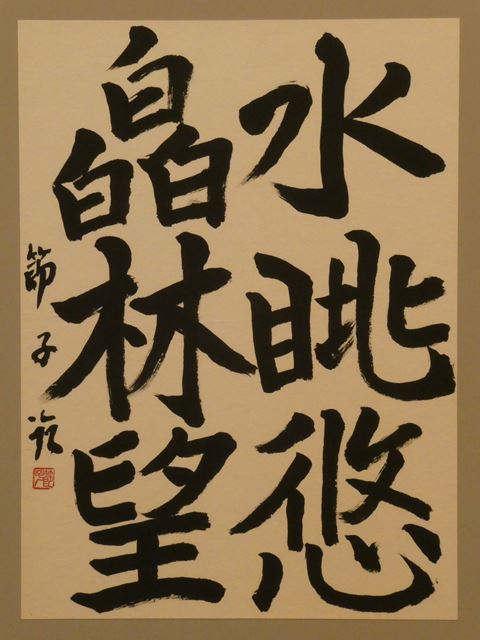 水眺悠
皛林望
節子